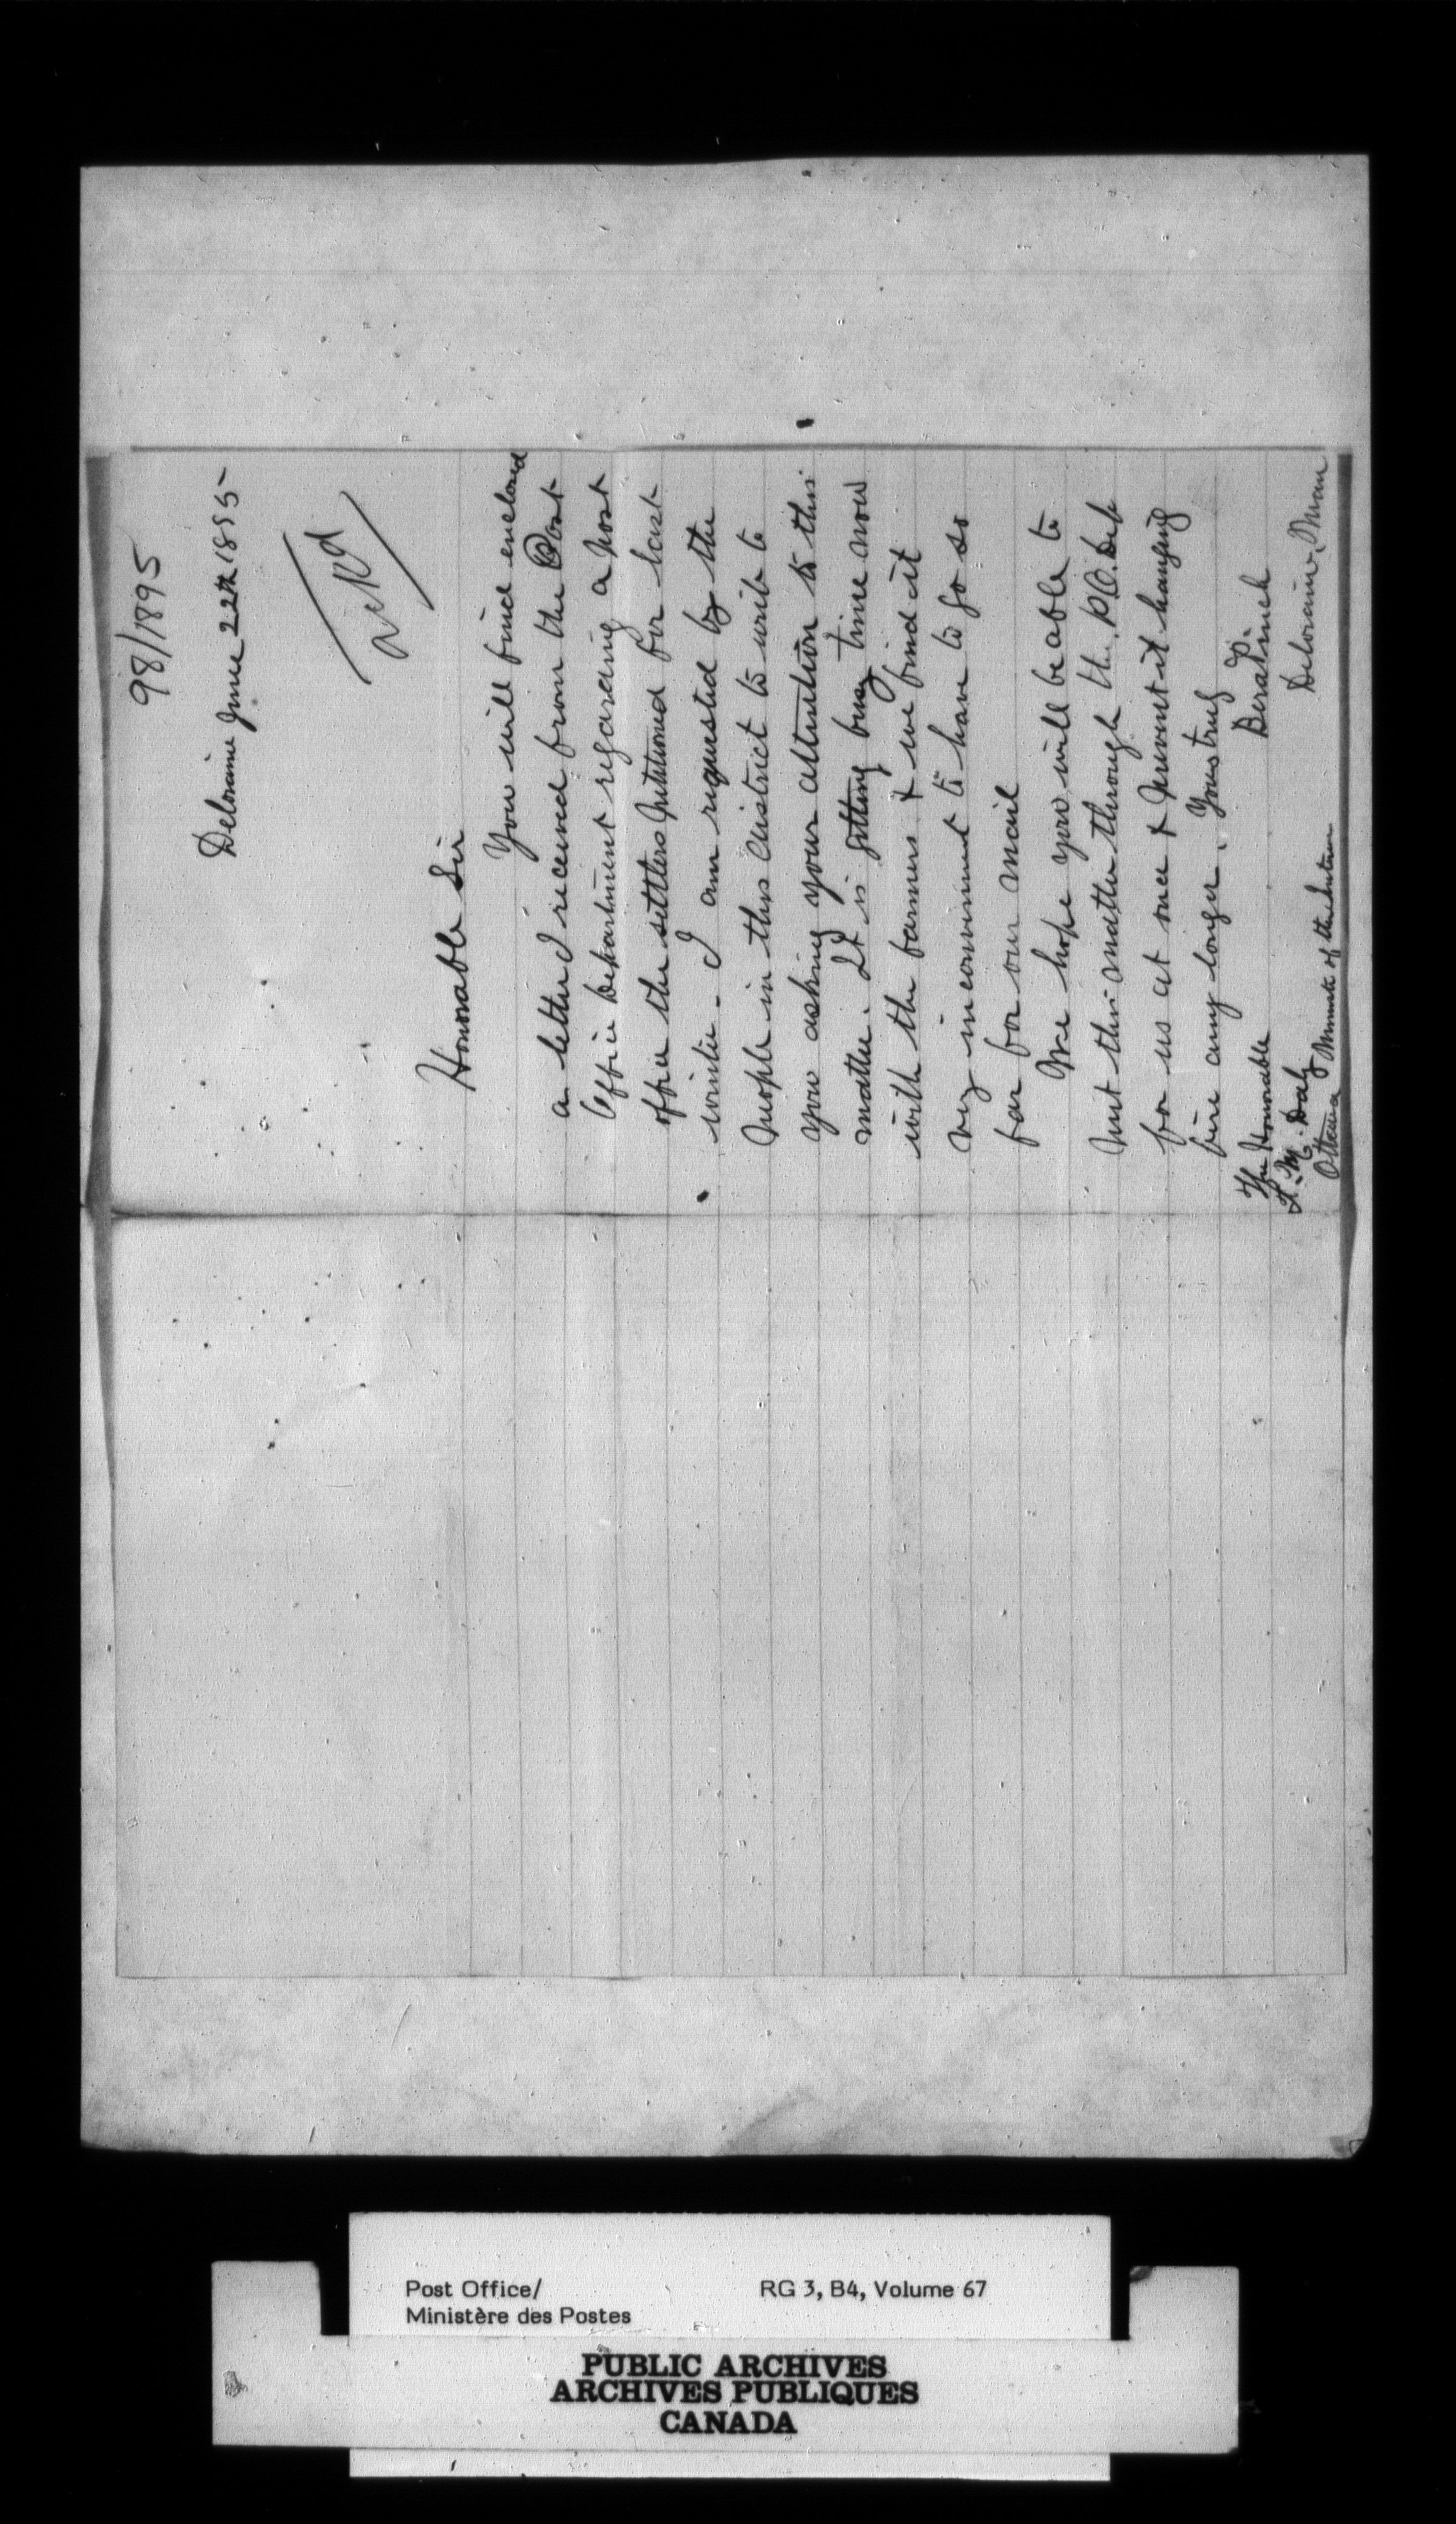 98/1895
Deloraine June 22th 1895
Honorable Sir
You will find enclosed
a letter I received from the Post
Office Department regarding a post
office the settlers petitioned for last
winter - I am requested by the
people in this district to write to
you asking your attention to this
matter. It is getting busy time now
with the farmers & we find it
very inconvenient to have to go so
far for our mail
We hope you will be able to
put this matter through the P.O. Dep
for us at once & prevent it hanging
fire any longer. Yours truly
The Honorable
T. M. Daly
Ottawa Minister of the Interior
Deloraine, Man
Post Office/
Ministère des Postes
RG 3, B4, Volume 67
PUBLIC ARCHIVES
ARCHIVES PUBLIQUES
CANADA